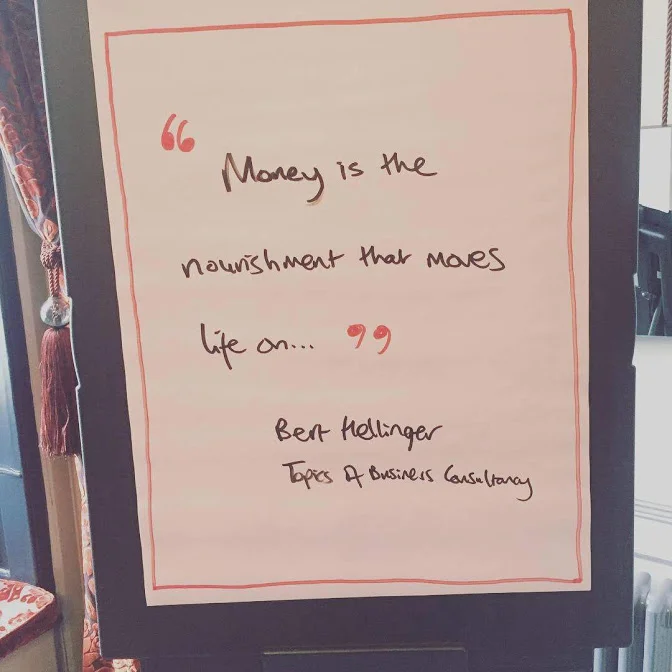 “ Money is the
nourishment that moves
life on... ”
Bert Hellinger
Topics of Business Consultancy